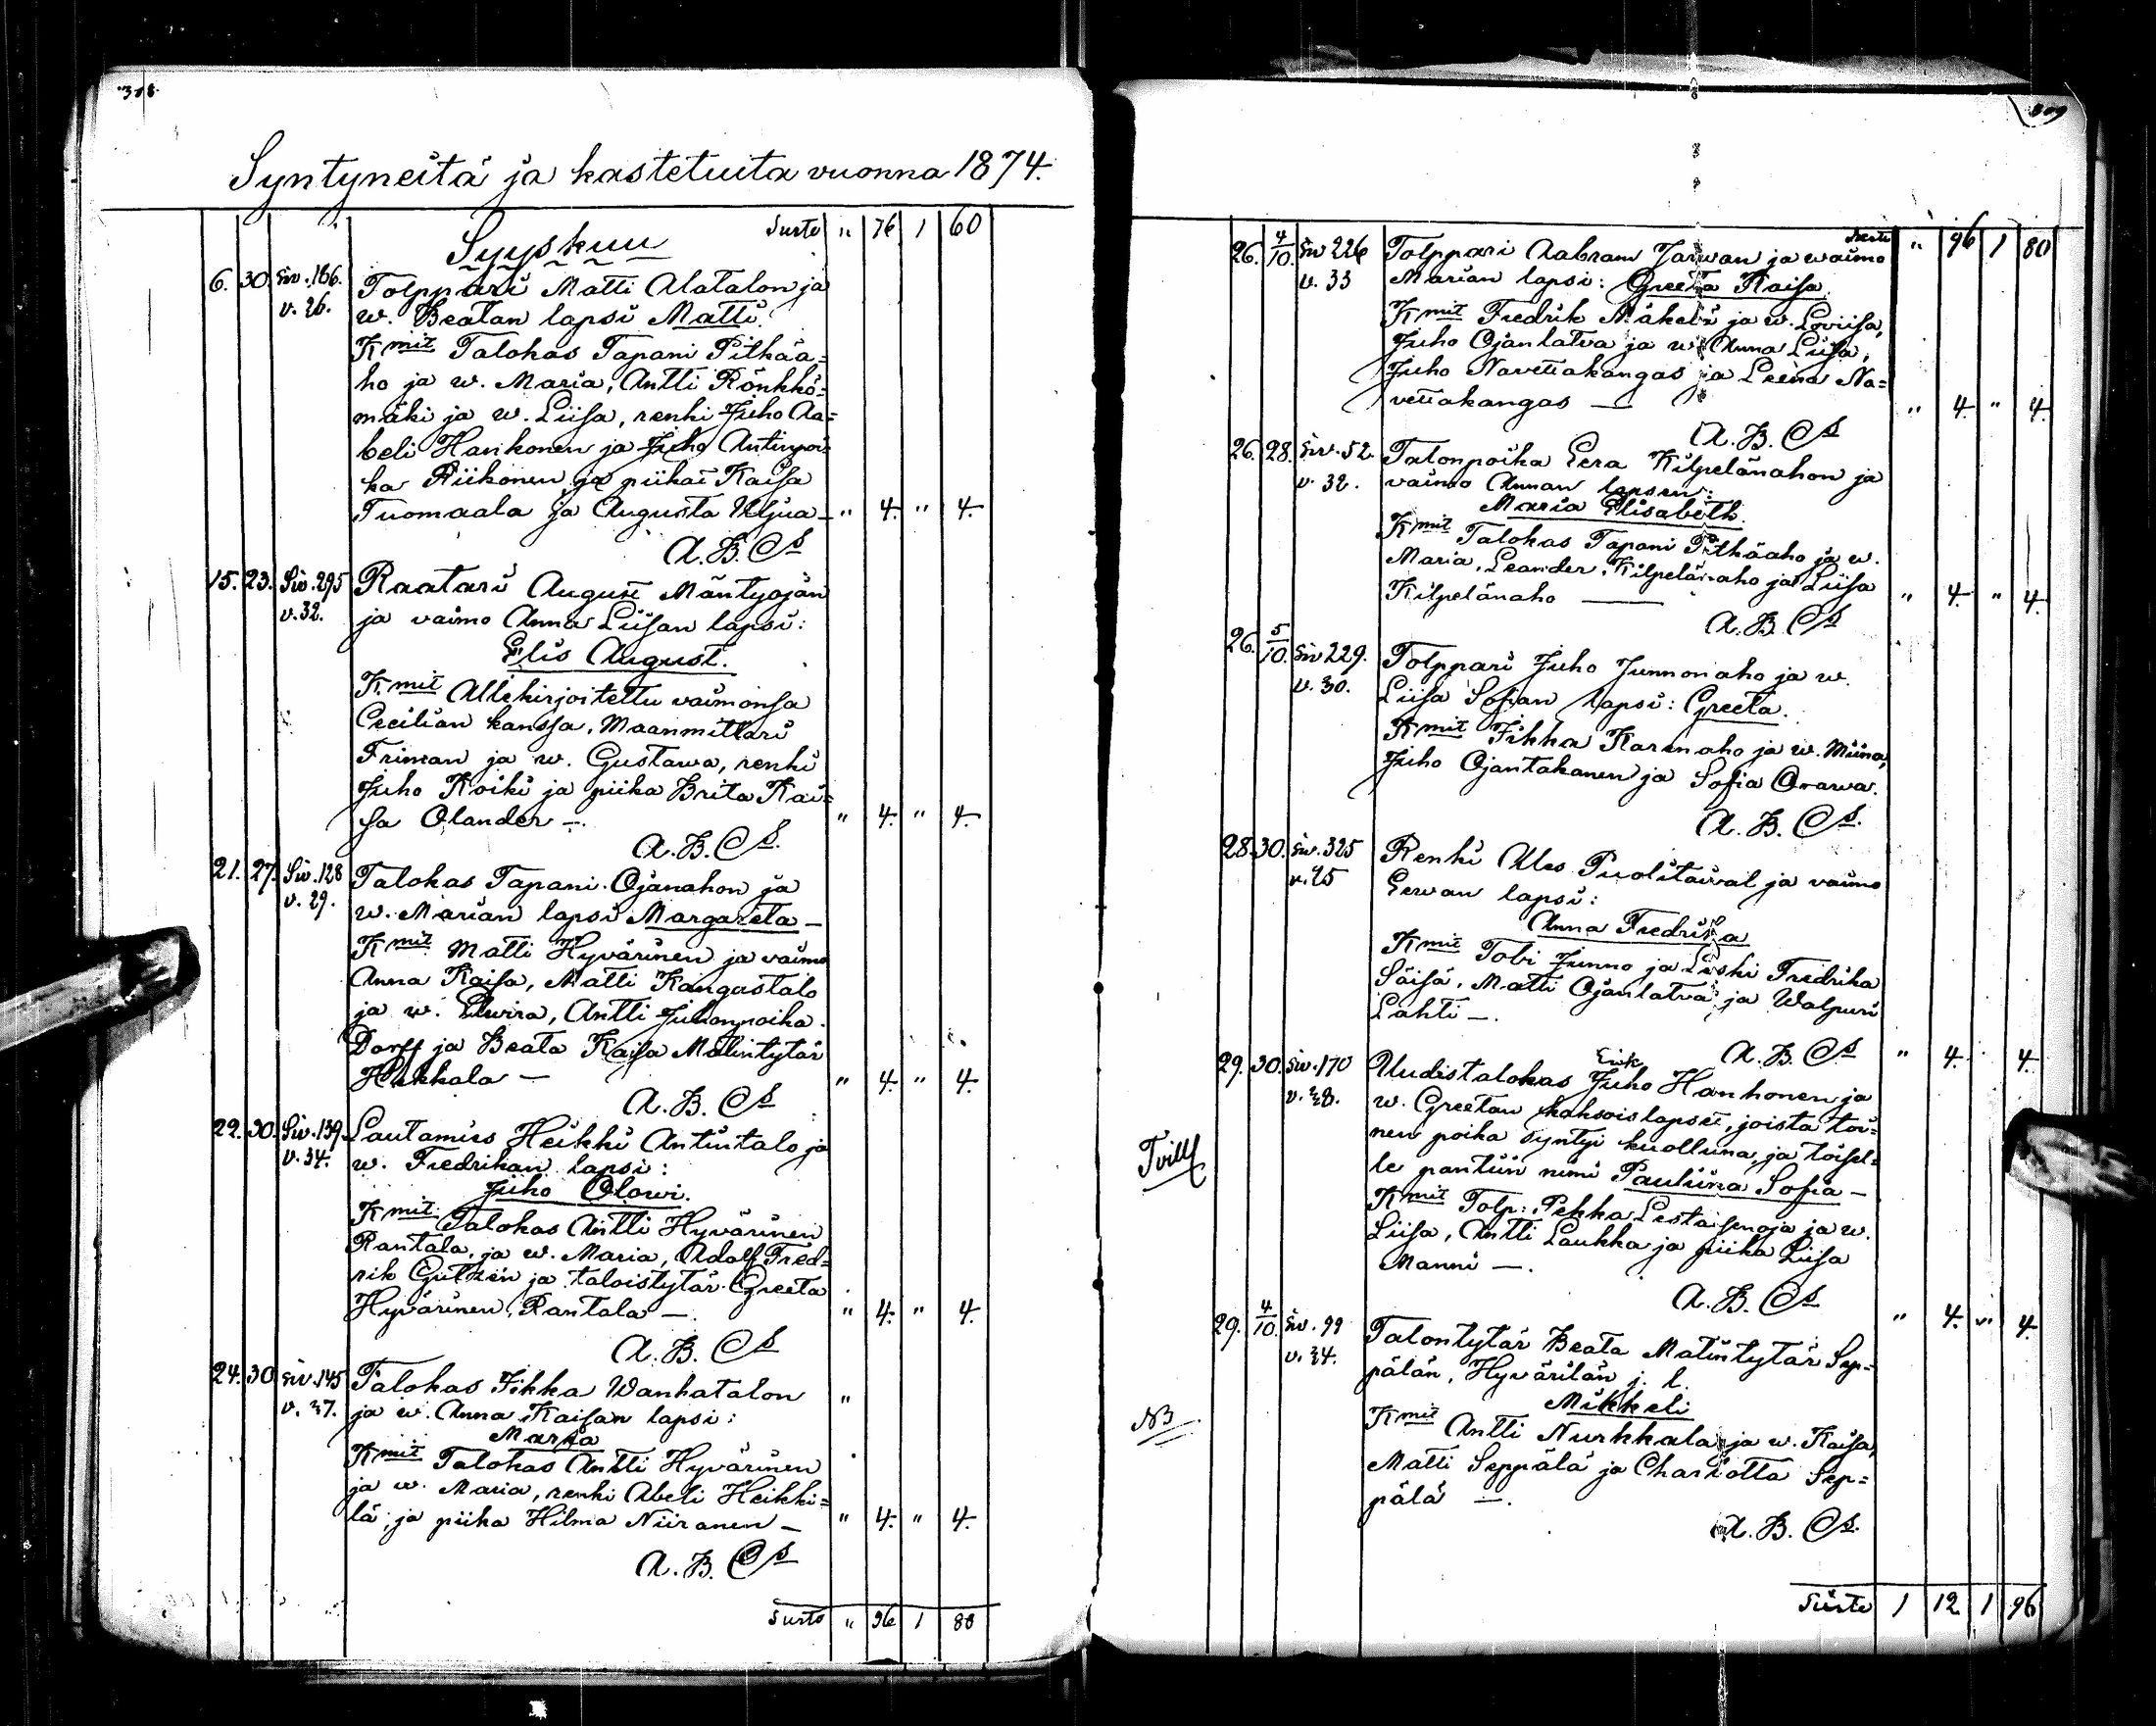 308
Syntyneitä ja kastetuita vuonna 1874.
Syyskuu
Siirto " 76 1 60
6. 30. Siv. 166. Tolppari Matti Alatalon ja
v. 26. w. Beatan lapsi Matti.
Kmit Talokas Tapani Pitkäa=
ho ja w. Maria, Antti Rönkkö=
mäki ja w. Liisa, renki Juho Aa=
beli Hankonen ja Juho Antinpoi=
ka Riikonen ja piikai Kaisa
Tuomaala ja Augusta Uljua — " 4. " 4.
A. B. Cs
15. 23. Siv. 295 Raatari August Mäntyojan
v. 32. ja vaimo Anna Liisan lapsi:
Elis August.
Kmit Allekirjoitettu vaimonsa
Cecilian kanssa, Maanmittari
Friman ja w. Gustawa, renki
Juho Koiki ja piika Brita Kai=
sa Olander —. " 4. " 4.
A. B. Cs.
21. 27. Siv. 128 Talokas Tapani Ojanahon ja
v. 29. w. Marian lapsi Margareta —
Kmit Matti Hyvärinen ja vaimo
Anna Kaisa, Matti Kangastalo
ja w. Elwira, Antti Juhonpoika
Dorff ja Beata Kaisa Matintytär
Hakkala — " 4. " 4.
A. B. Cs
22. 30. Siv. 139. Lautamies Heikki Antintalo ja
v. 34. w. Fredrikan lapsi:
Juho Olowi.
Kmit. Talokas Antti Hyvärinen
Rantala, ja w. Maria, Adolf Fred=
rik Gutzén ja taloistytär Greeta
Hyvärinen, Rantala —. " 4. " 4.
A. B. Cs
24. 30. Siv. 145 Talokas Jikka Wanhatalon "
v. 37. ja w. Anna Kaisan lapsi:
Maria
Kmit Talokas Antti Hyvärinen
ja w. Maria, renki Abeli Heikki=
lä, ja piika Hilma Niiranen — " 4. " 4.
A. B. Cs
Siirto " 96 1 80
309
Siirto " 96 1 80
26. 4/10. Siv 226 Tolppari Aabram Jarwan ja waimo
v. 33 Marian lapsi: Greeta Kaisa.
Kmit Fredrik Mäkelä ja w. Loviisa,
Juho Ojanlatva ja w. Anna Liisa,
Juho Navettakangas ja Leena Na=
vettakangas — " 4. " 4.
A. B. Cs
26. 28. Siv. 52. Talonpoika Eera Kilpelänahon ja
v. 32. vaimo Annan lapsen:
Maria Elisabeth.
Kmit Talokas Tapani Pitkäaho ja w.
Maria, Leander Kilpelänaho ja Liisa
Kilpelänaho — " 4. " 4.
A. B. Cs
26. 5/10. Siv 229. Tolppari Juho Junnonaho ja w.
v. 30. Liisa Sofian lapsi: Greeta.
Kmit Jikka Karinaho ja w. Miina,
Juho Ojantakanen ja Sofia Orawa.
A. B. Cs.
28. 30. Siv. 325 Renki Ules Puolitaival ja vaimo
v. 25 Eewan lapsi:
Anna Fredrika
Kmit Tobi Junno ja Leski Fredrika
Säisä, Matti Ojanlatva ja Walpuri
Lahti —.
A. B. Cs " 4. 4.
29. 30. Siv. 170 Uudistalokas Erik Juho Hanhonen ja
v. 28. w. Greetan kaksoislapset, joista toi=
nen poika syntyi kuolluna, ja toisel=
Tvill
le pantiin nimi Pauliina Sofia —
Kmit Tolp: Pekka Lestaisenoja ja w.
Liisa, Antti Laukka ja piika Liisa
Manni —.
A. B. Cs " 4. " 4.
29. 4/10. Siv. 99 Talontytär Beata Matintytär Sep=
v. 34. pälän, Hyvärilän j. l.
Mikkeli
NB
Kmit Antti Nurkkala ja w. Kaisa,
Matti Seppälä ja Charlotta Sep=
pälä —.
A. B. Cs.
Siirto 1 12 1 96